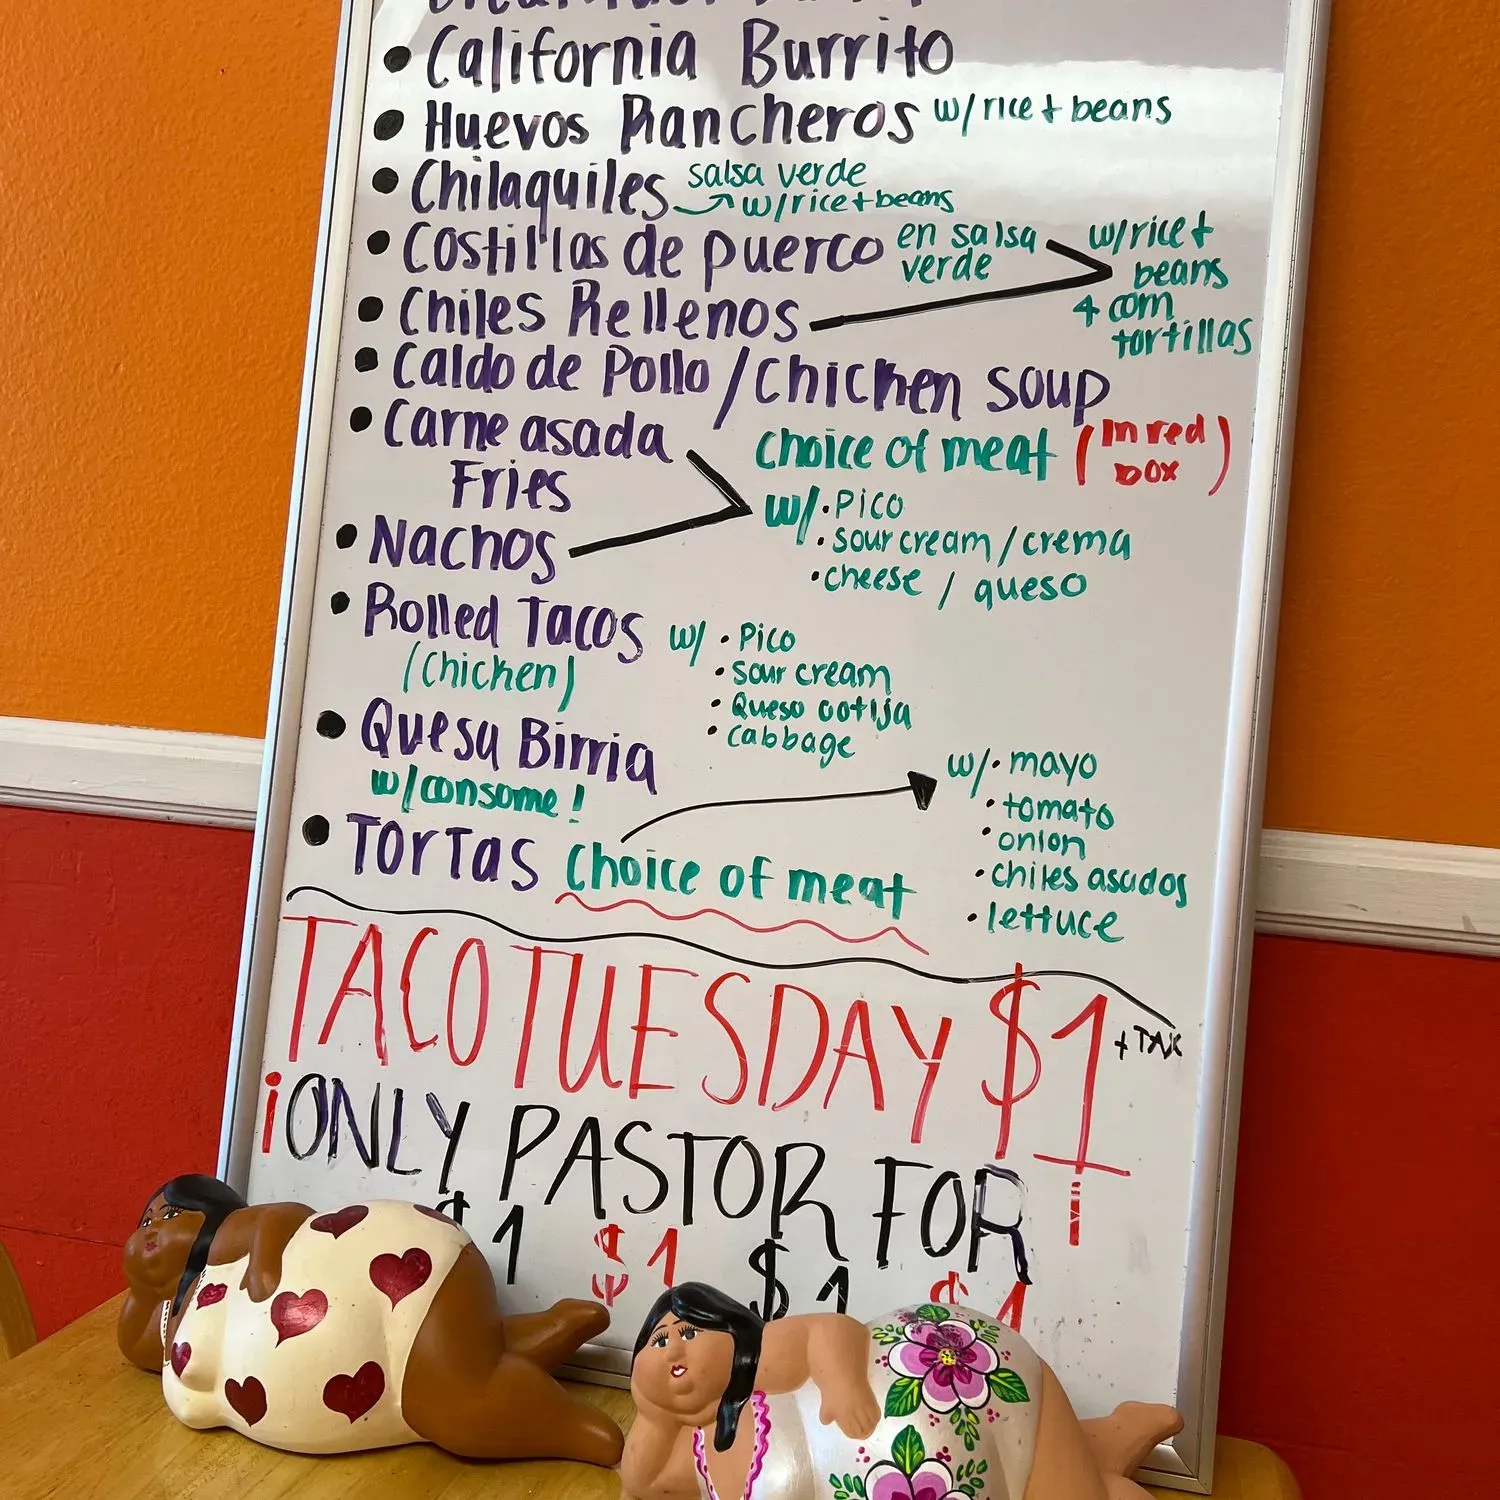 • California Burrito
• Huevos Rancheros w/rice + beans
• Chilaquiles salsa verde
w/rice + beans
• Costillas de puerco en salsa verde
w/rice + beans
+ corn tortillas
• Chiles Rellenos
• Caldo de Pollo / Chicken soup
• Carne asada Fries
choice of meat (in red box)
w/ • Pico
• sour cream / crema
• cheese / queso
• Nachos
• Rolled Tacos
(Chicken)
w/ • Pico
• sour cream
• Queso cotija
• cabbage
• Quesa Birria
w/consome!
• Tortas choice of meat
w/ • mayo
• tomato
• onion
• chiles asados
• lettuce
TACO TUESDAY $1 + TAX
¡ONLY PASTOR FOR
$1 $1 $1 $1